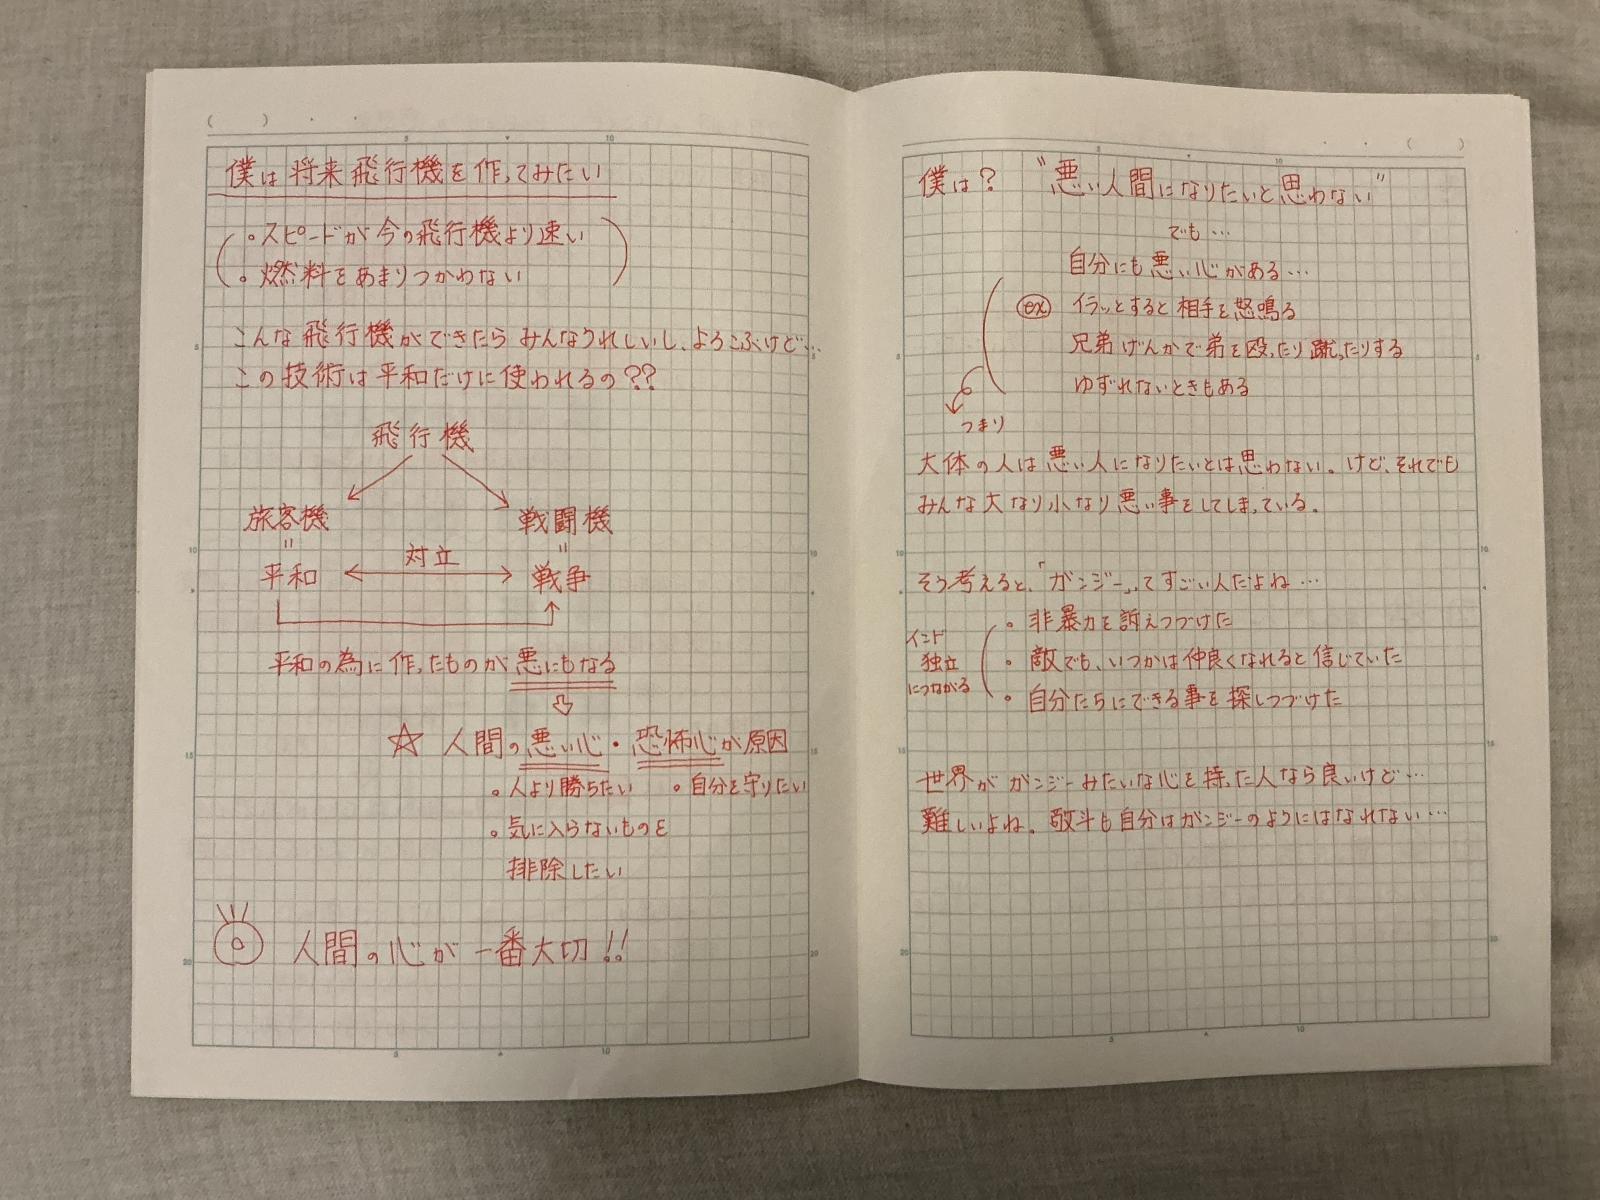 僕は将来飛行機を作ってみたい
。スピードが今の飛行機より速い
。燃料をあまりつかわない
こんな飛行機ができたら みんなうれしいし、よろこぶけど…
この技術は平和だけに使われるの??
飛行機
旅客機 戦闘機
〃 〃
平和 対立 戦争
平和の為に作ったものが悪にもなる
☆ 人間の悪い心・恐怖心が原因
。人より勝ちたい 。自分を守りたい
。気に入らないものを
排除したい
人間の心が一番大切!!
僕は? "悪い人間になりたいと思わない"
でも…
自分にも悪い心がある…
ex イラッとすると相手を怒鳴る
兄弟げんかで弟を殴ったり蹴ったりする
ゆずれないときもある
つまり
大体の人は悪い人になりたいとは思わない。けど、それでも
みんな大なり小なり悪い事をしてしまっている。
そう考えると、「ガンジー」ってすごい人だよね…
。非暴力を訴えつづけた
。敵でも、いつかは仲良くなれると信じていた
。自分たちにできる事を探しつづけた
インド
独立
につながる
世界がガンジーみたいな心を持った人なら良いけど…
難しいよね。敬斗も自分はガンジーのようにはなれない…